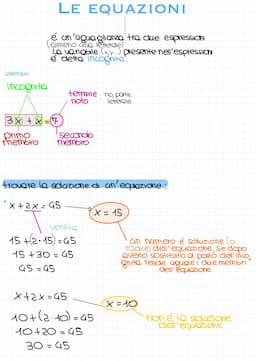 LE EQUAZIONI
è un'uguaglianza tra due espressioni
(almeno una letterale)
La variabile (x,y...) presente nell'espressioni
è detta incognita.
esempio:
incognita
termine noto
no parte letterale
3x + x = 7
primo membro
secondo membro
trovare la soluzione di un'equazione
x + 2x = 45
x = 15
verifica
15 + (2·15) = 45
15 + 30 = 45
45 = 45
un numero è soluzione (o
radice) dell'equazione, se dopo
averlo sostituito al posto dell'inco
gnita rende uguale i due membri
dell'equazione
x + 2x = 45
x = 10
10 + (2·10) = 45
10 + 20 = 45
30 = 45
non è la soluzione
dell'equazione